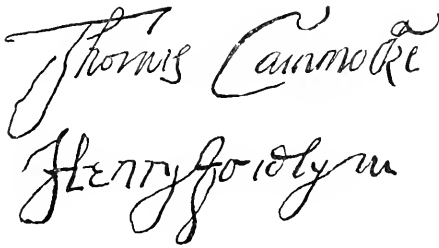 Thomas Cammocke
Henry Josslyn